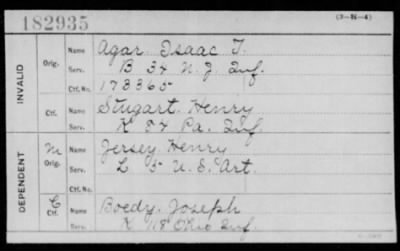 182935
(3-м-4)
INVALID
Orig.
Name Agar Isaac T.
Serv. B 34 N.J. Inf.
Ctf. No. 173365
Ctf.
Name Stugart Henry
Serv. K 84 Pa. Inf.
DEPENDENT
M
Orig.
Name Jersey Henry
Serv. L 5 U.S. Art.
Ctf. No.
C
Ctf.
Name Boedy Joseph
Serv. K 118 Ohio Inf.